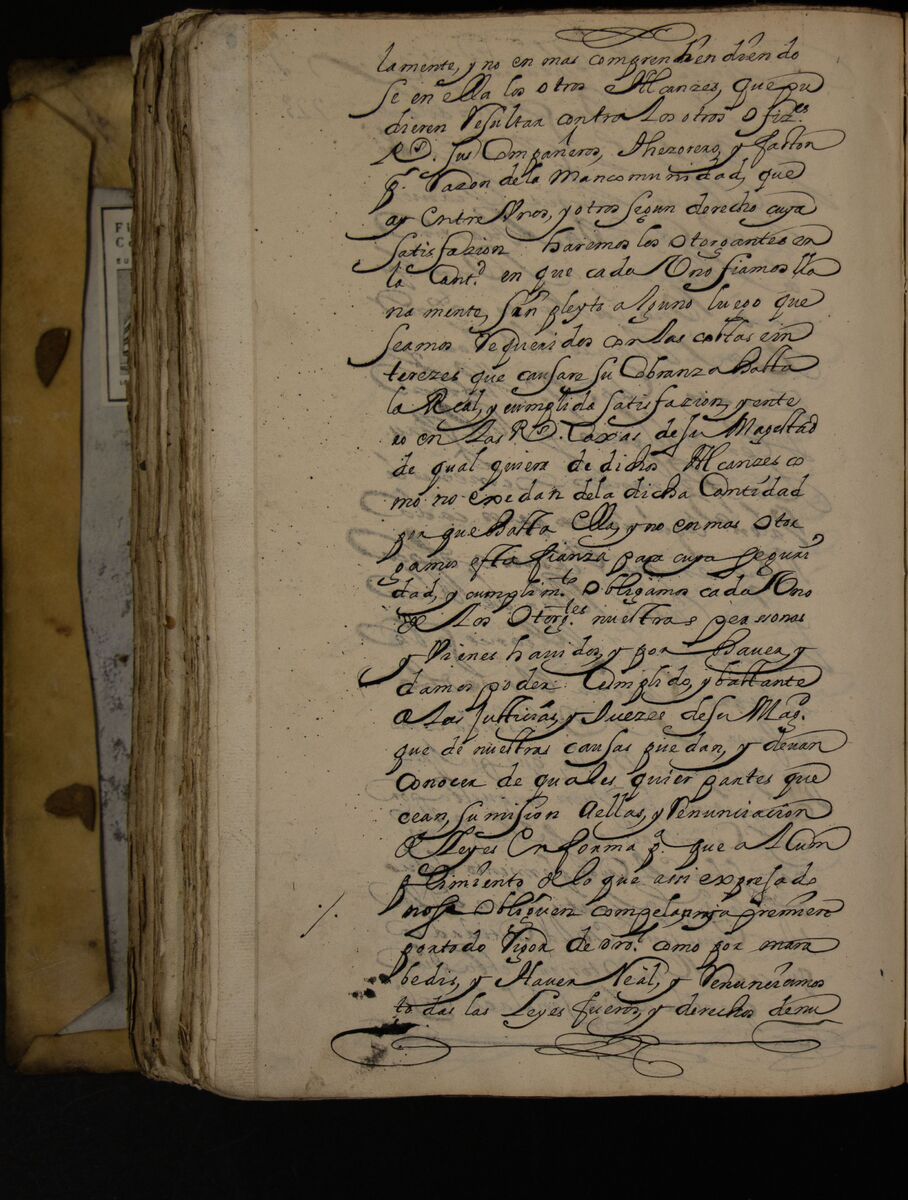 lamente, y no en mas comprendiendo
se en ella los otros Alcanzes, que pu
dieren Resultar contra los otros ofiz.es
R.s. sus Compañeros, Thezorero, y factor
p.r Razon de la Mancomunidad, que
ay Entre Unos, y otros segun derecho cuya
satisfazion haremos los otorgantes en
la Cant.d en que cada Uno fiamos lla
na mente, sin pleyto alguno luego que
seamos Requeridos con las costas e in
terezes que causare su Cobranza hasta
la Real, y cumplida satisfazion, y ente
ro en las R.s. Caxas de su Magestad
de qual quiera de dichos Alcanzes co
mo no exedan de la dicha Cantidad
por que hasta Ella, y no en mas otor
gamos esta fianza para cuya seguri
dad, y cumplim.to obligamos cada Uno
de los otorg.tes nuestras personas
y Vienes havidos, y por haver, y
damos poder Cumplido, y bastante
a las Justicias, y Juezes de su Mag.
que de nuestras causas puedan, y devan
conocer de quales quier partes que
cean, sumision a ellas, y Renunciacion
de Leyes En forma p.a que al Cum
plimiento de lo que assi expresado
nos obliguen compelan, y apremien
por todo Rigor de dro. como por mara
bedis, y Haver Real, y Renunciamos
todas las Leyes fueros, y derechos de nu